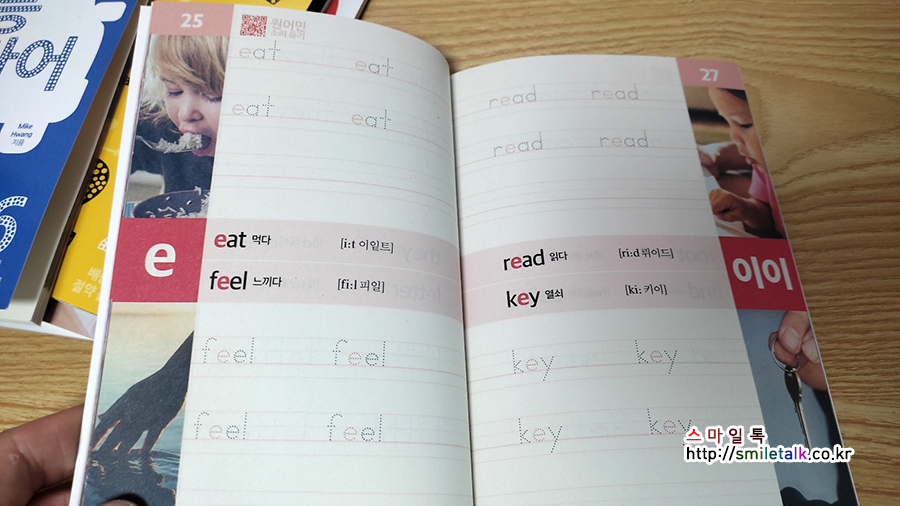 어
Mike
Hwang
지음
25
원어민
소리 듣기
eat eat
eat eat
e
eat 먹다 [i:t 이일트]
feel 느끼다 [fi:l 피일]
feel feel
feel feel
27
read read
read read
read 읽다 [ri:d 뤼이드]
key 열쇠 [ki: 키이]
이이
key key
key key
스마일톡
http://smiletalk.co.kr